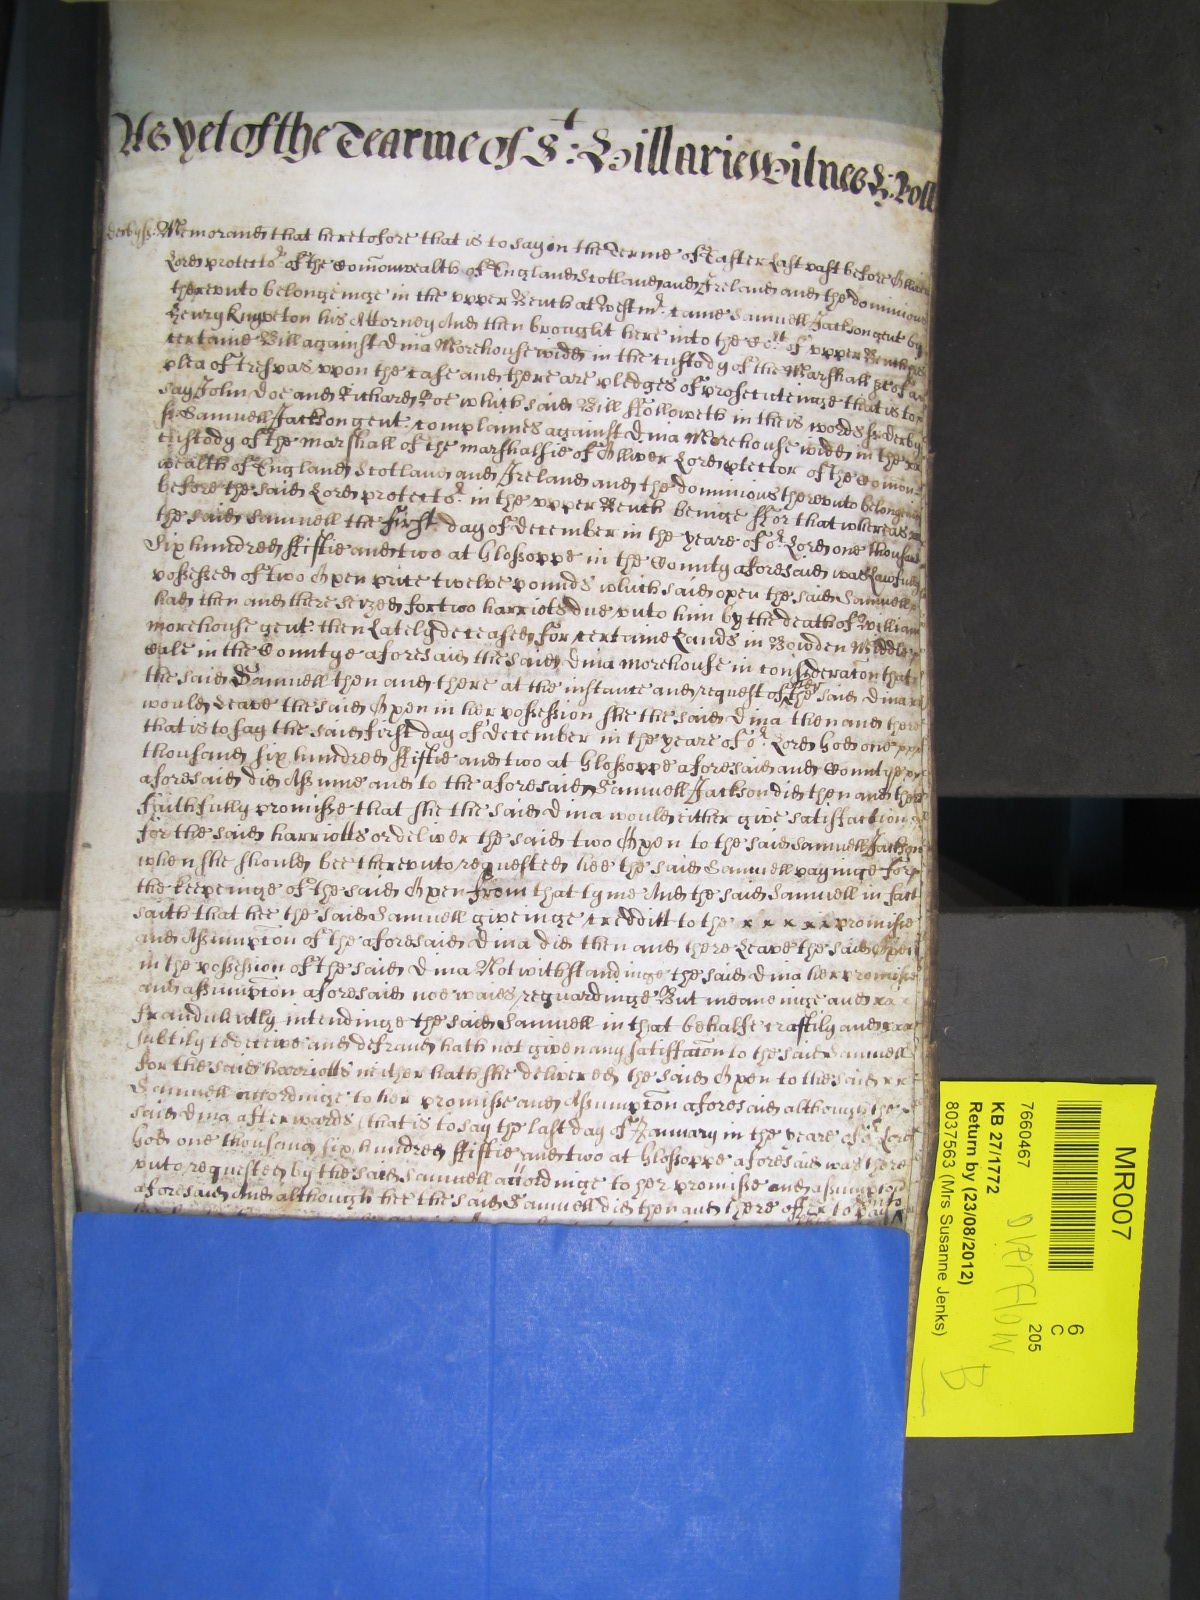 As yet of the Tearme of St: Hillarie Witnes H: Roll
derbyss: Memorand that heretofore that is to say in the Terme of Easter Last past before Oliver
Lord protector of the Comonwealth of England Scotland and Ireland and the dominions
thereunto belonginge in the upper Bench at Westmr. came Samuell Jackson gent by
Henry Knyveton his Attorney And then brought here into the Court of upper Bench his
certaine Bill against Dina Morehouse widd in the custody of the Marshall &c of a
plea of trespas upon the case and there are pledges of prosecuteinge that is to
say John Doe and Richard Roe which said Bill ffolloweth in theis words ss derby
ss Samuell Jackson gent complaines against Dina Morehouse widd in the xx
custody of the marshall of the marshalsie of Olliver Lord protector of the Comon
wealth of England Scotland and Ireland and the dominions thereunto belonginge
before the said Lord protector in the upper Bench beinge ffor that whereas xx
the said Samuell the first day of december in the yeare of or Lord one thousand
Six hundred ffiftie and two at Glossoppe in the County aforesaid was Lawfully
possessed of two Oxen price twelve pounds which said oxen the said Samuell
had then and there seized for two harriots due unto him by the death of William
morehouse gent then Lately deceased for certaine Lands in Bowden Middle
cale in the Countye aforesaid the said Dina morehouse in consideracon that
the said Samuell then and there at the instance and request of her the said Dina xx
would Leave the said Oxen in her possession she the said Dina then and there
that is to say the said first day of december in the yeare of or Lord God one xxx
thousand six hundred ffiftie and two at Glossoppe aforesaid and Countye xx
aforesaid did Assume and to the aforesaid Samuell Jackson did then and there
faithfully promisse that she the said Dina would either give satisfaction
for the said harriotts or deliver the said two Oxen to the said Samuell Jackson
when she should bee thereunto requested hee the said Samuell payinge for
the keepeinge of the said Oxen from that tyme And the said Samuell in fact
saith that hee the said Samuell giveinge creditt to the x x x x x promisse
and Assumpcon of the aforesaid Dina did then and there Leave the said Oxen
in the possession of the said Dina Notwithstandinge the said Dina her promisse
and assumpcon aforesaid noe waies reguardinge But meaneinge and xxx
fraudulently intendinge the said Samuell in that behalfe craftily and xxx
subtily to deceive and defraud hath not given any satisfaccon to the said Samuell
for the said harriotts neither hath she delivered the said Oxen to the said xxx
Samuell accordinge to her promisse and Assumpcon aforesaid although the
said Dina afterwards (that is to say the last day of January in the yeare of or Lord
God one thousand six hundred ffiftie and two at Glossoppe aforesaid was there
unto requested by the said Samuell accordinge to her promisse and assumpcon
aforesaid And although hee the said Samuell did then and there offer to pay
MR007
6
C
205
7660467
KB 27/1772
Return by (23/08/2012)
8037563 (Mrs Susanne Jenks)
overflow
B